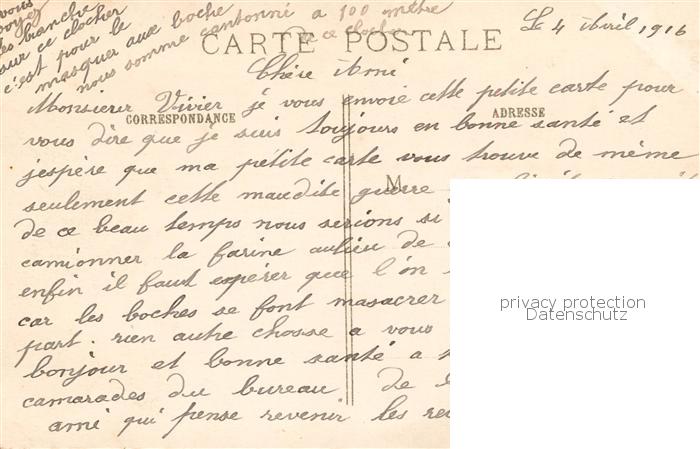 vous
voyez
les branche
sur ce clocher
c'est pour le
masquer aux boche
nous somme cantonné a 100 mètre
de ce clocher
CARTE POSTALE
Le 4 Avril 1916
Chère Ami
Monsieur Vivier je vous envoie cette petite carte pour
CORRESPONDANCE
ADRESSE
vous dire que je suis toujours en bonne santé et
jespère que ma petite carte vous trouve de même
M
seulement cette maudite guerre
de ce beau temps nous serions si
camionner la farine aulieu de
enfin il faut espérer que l'ôn
car les boches se font masacrer
part. rien autre chosse a vous
bonjour et bonne santé a
camarades du bureau de
ami qui pense revenir les
privacy protection
Datenschutz